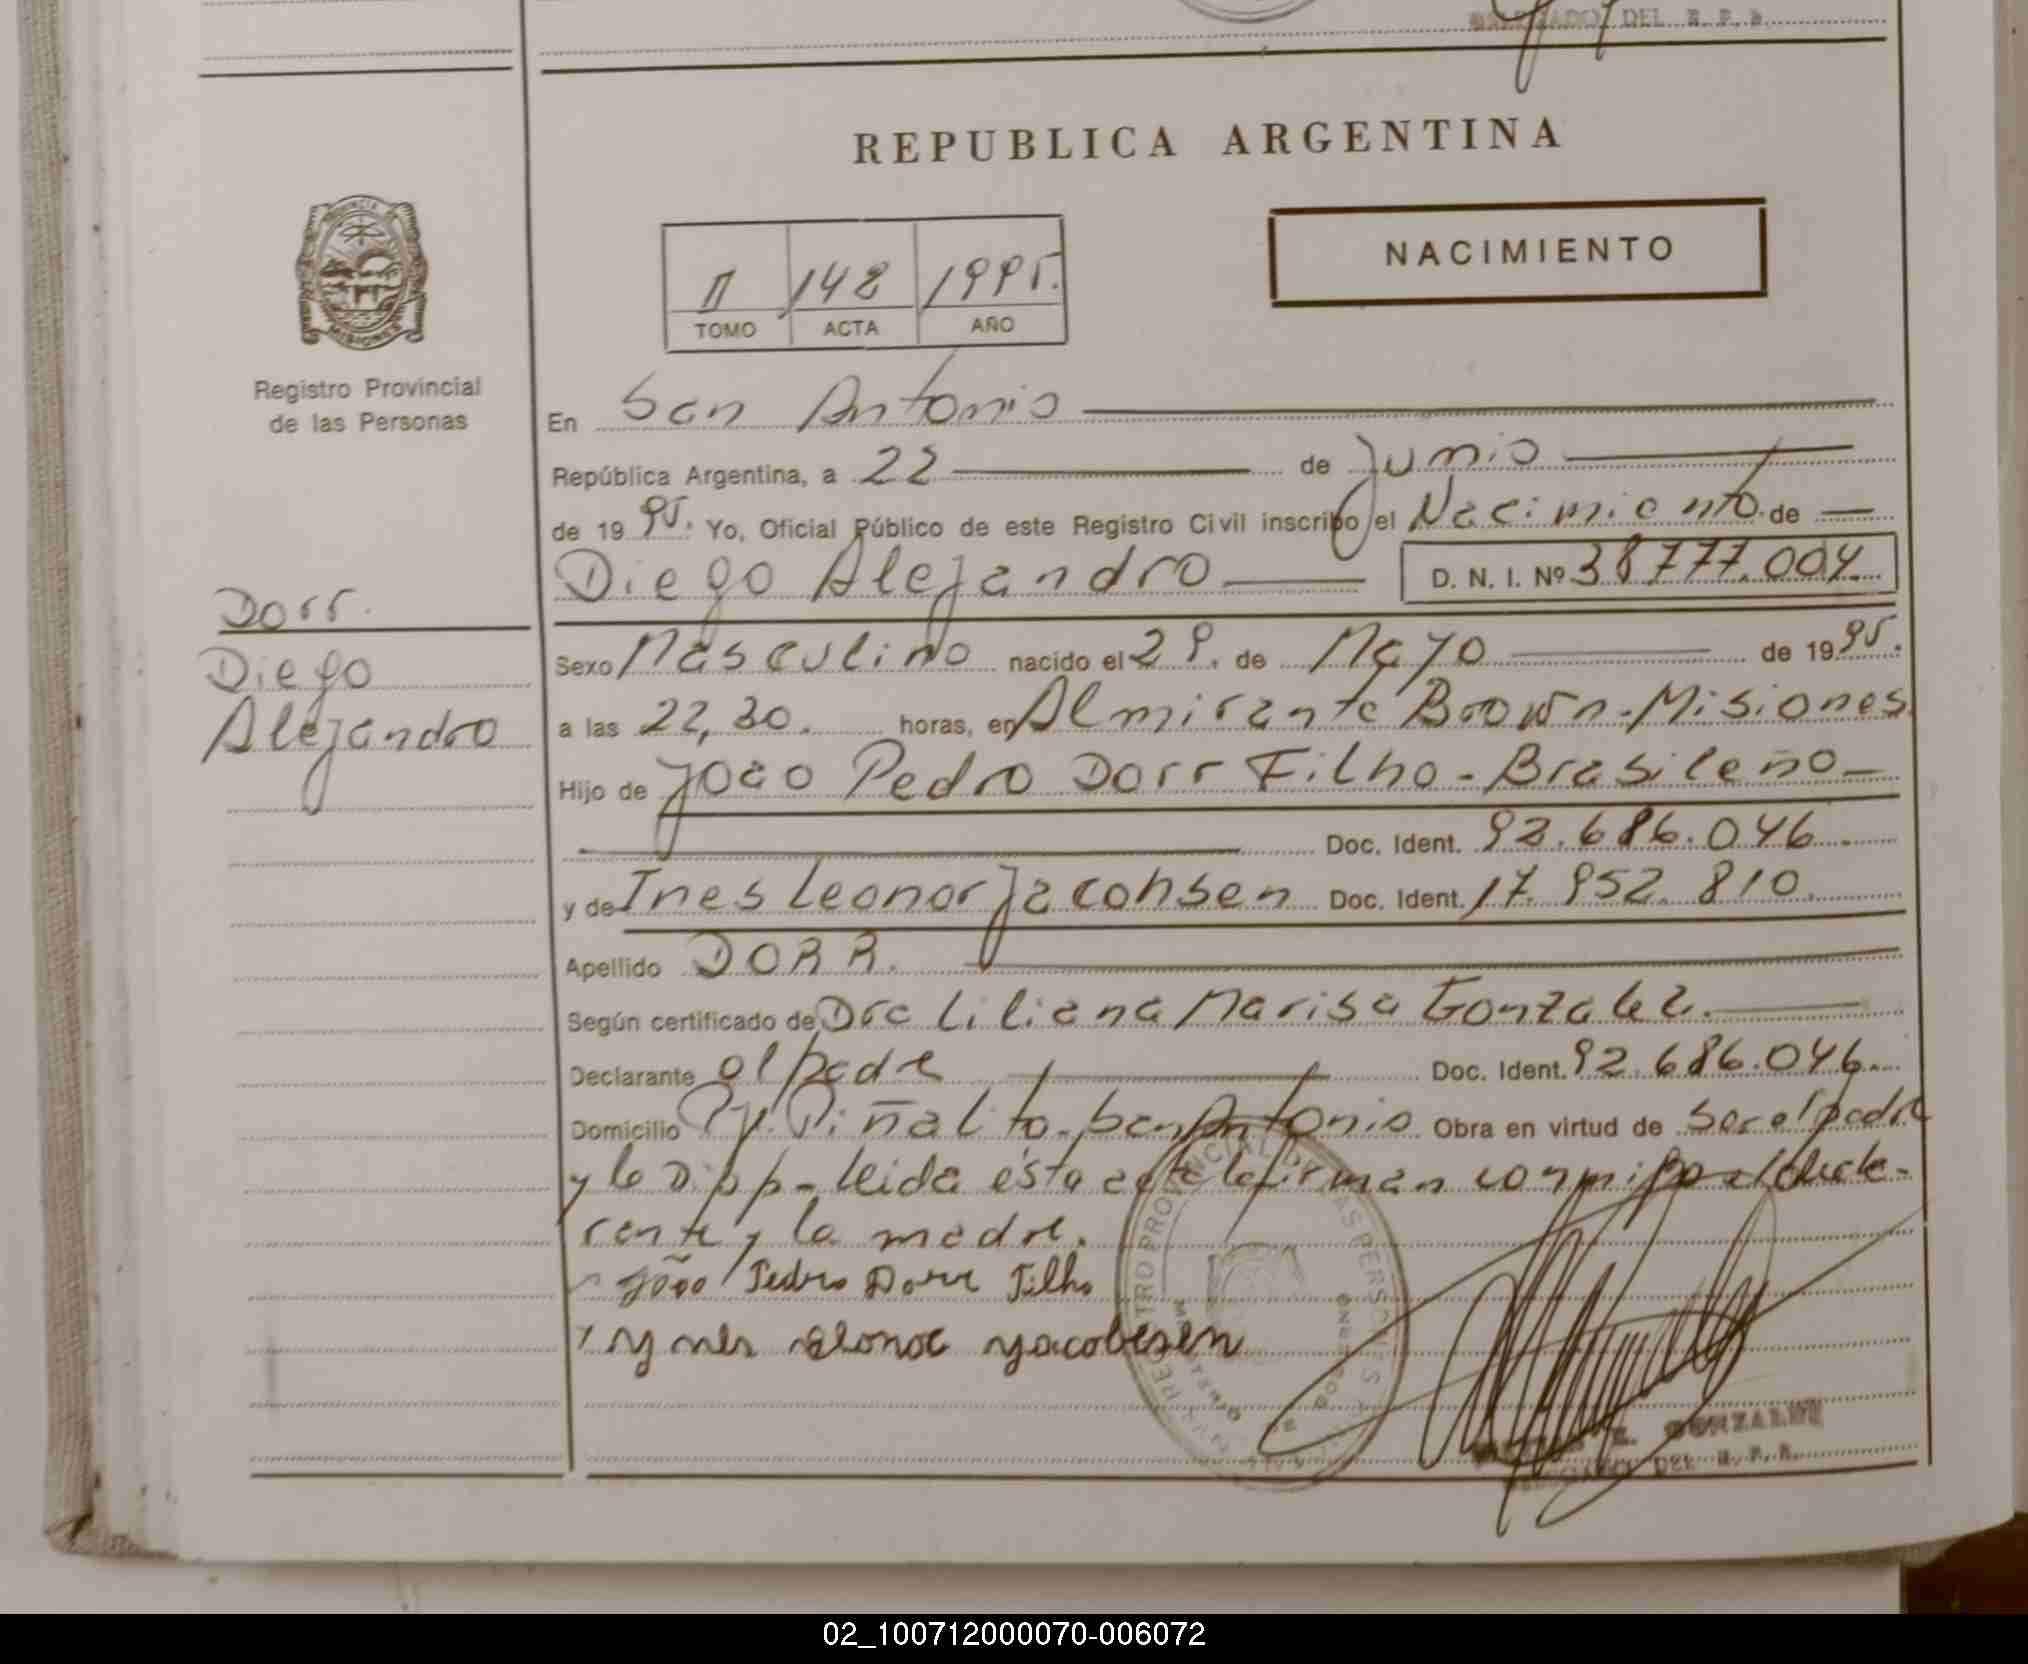 DELEGADO DEL R. P. P.
REPUBLICA ARGENTINA
NACIMIENTO
II 148 1995.
TOMO ACTA AÑO
PROVINCIA
MISIONES
Registro Provincial
de las Personas
En San Antonio
República Argentina, a 22 de Junio
de 1995. Yo, Oficial Público de este Registro Civil inscribo el Nacimiento de
Diego Alejandro D. N. I. Nº 38777.004.
Dorr.
Diego
Alejandro
Sexo Masculino nacido el 29. de Mayo de 1995.
a las 22,30. horas, en Almirante Brown-Misiones
Hijo de Joao Pedro Dorr Filho - Brasileño
Doc. Ident. 92.686.046
y de Ines Leonor Jacobsen Doc. Ident. 17.952.810.
Apellido DORR.
Según certificado de Dra Liliana Marisa Gonzalez.
Declarante el padre Doc. Ident. 92.686.046
Domicilio Piñalito-San Antonio Obra en virtud de Ser el padre
y lo D. leida ésta acta la firman conmigo el decla-
rante y la madre.
João Pedro Dorr Filho
ynes elonor yacobesen
E. GONZALEZ
DELEGADO DEL R. P. P.
02_100712000070-006072